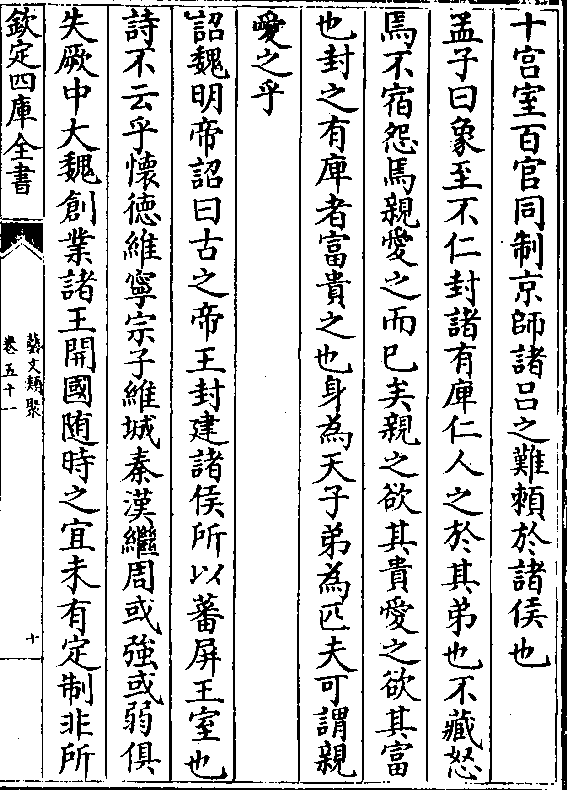 十宫室百官同制京師諸吕之難頼於諸侯也
孟子曰象至不仁封諸有庳仁人之於其弟也不藏怒
焉不宿怨焉親愛之而已矣親之欲其貴愛之欲其富
也封之有庳者富貴之也身為天子弟為匹夫可謂親
愛之乎
詔魏明帝詔曰古之帝王封建諸侯所以蕃屏王室也
詩不云乎懐徳維寧宗子維城秦漢繼周或強或弱俱
失厥中大魏創業諸王開國随時之宜未有定制非所
欽定四庫全書
藝文類聚
卷五十一
十